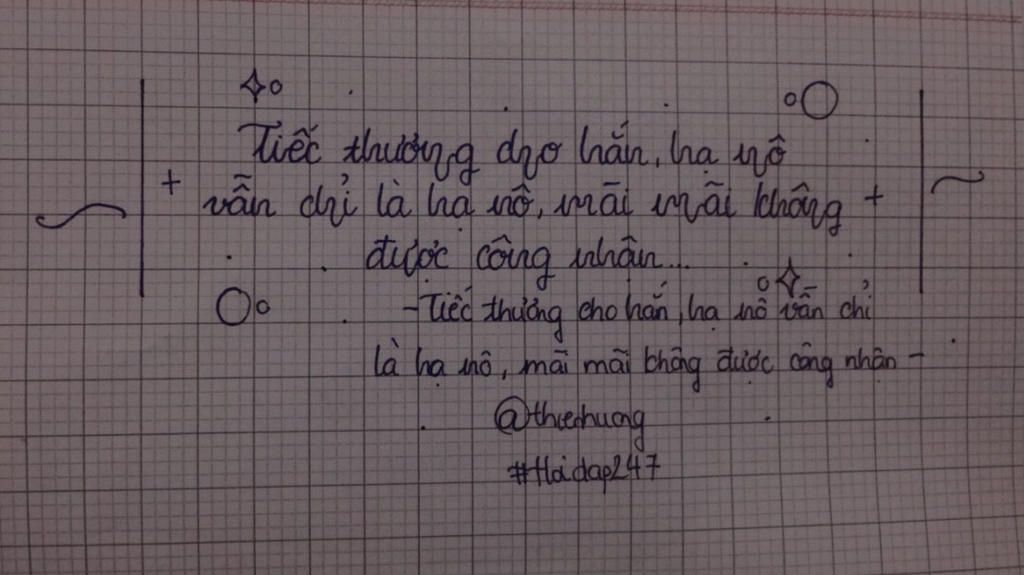 Tiếc thương cho hắn, hạ nô
vẫn chỉ là hạ nô, mãi mãi không
được công nhận...
- Tiếc thương cho hắn, hạ nô vẫn chỉ
là hạ nô, mãi mãi không được công nhận -
@thuchuong
#Hoidap247